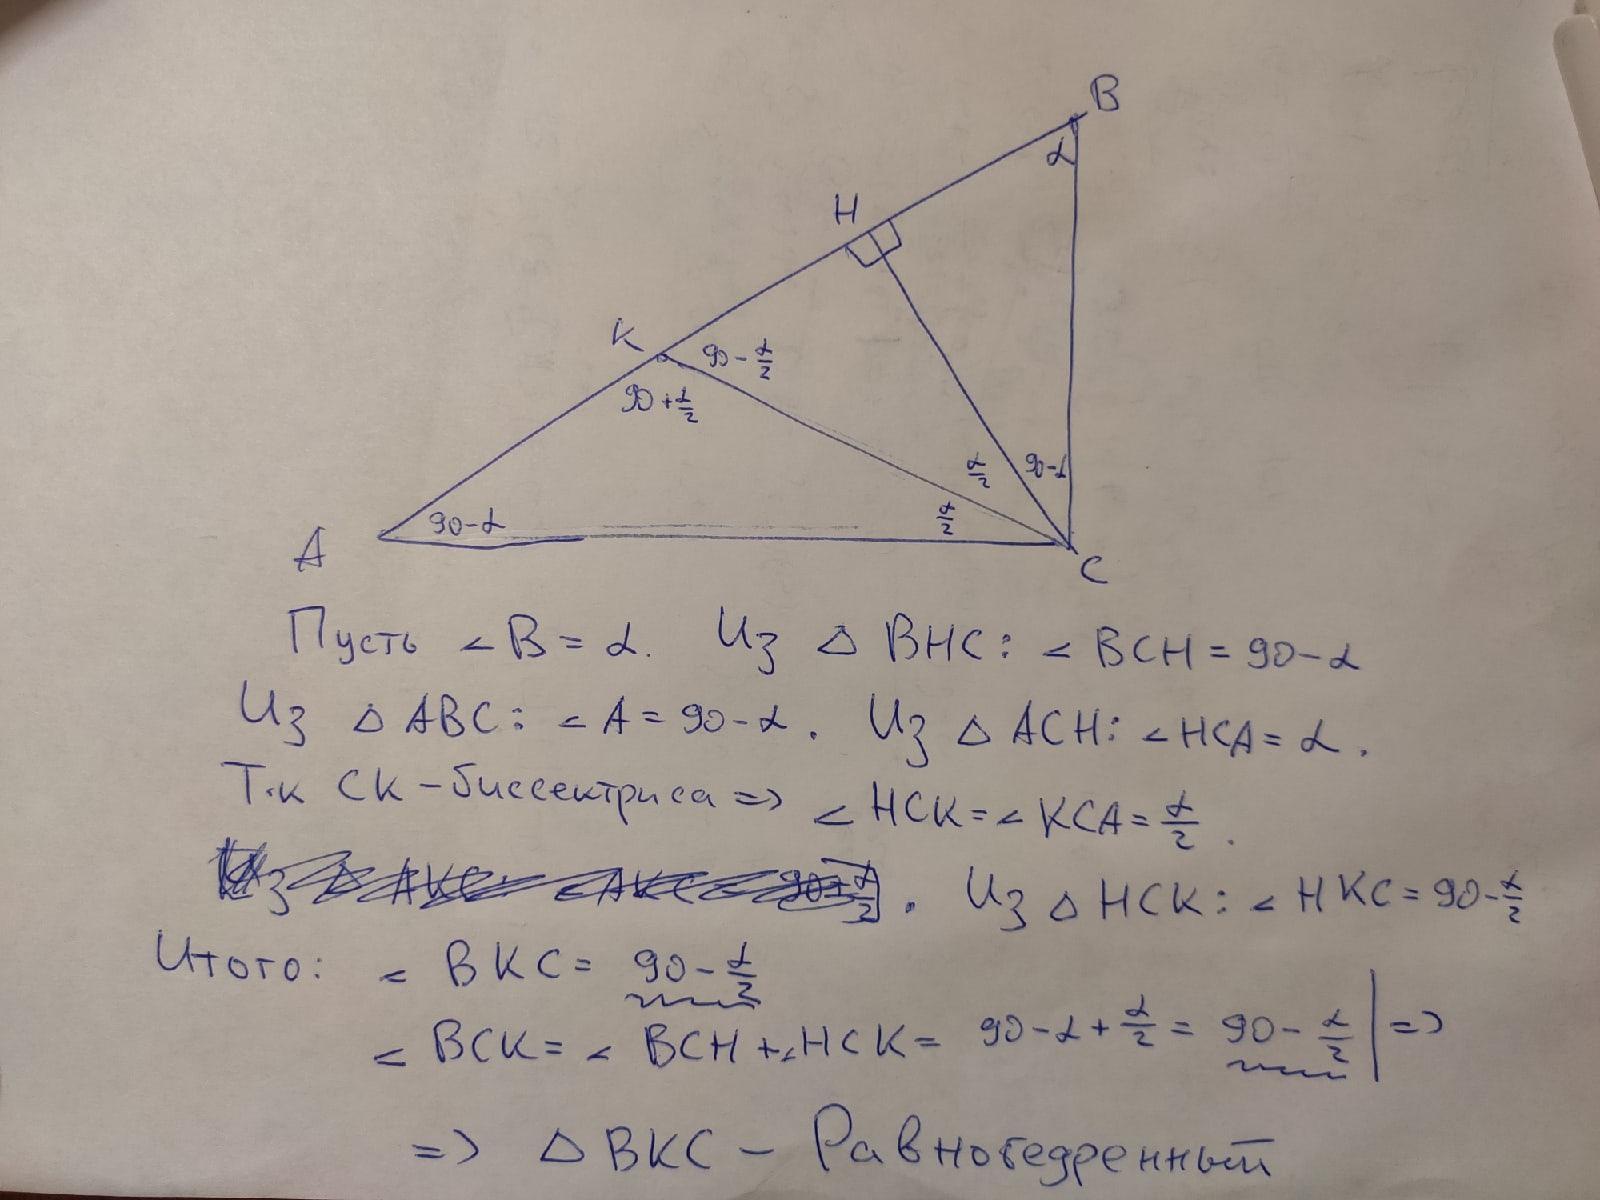 B
α
H
K
90-α/2
90+α/2
α/2
90-α
90-α
α/2
A
C
Пусть ∠B = α. Из △ BHC: ∠ BCH = 90-α
Из △ ABC: ∠ A = 90-α. Из △ ACH: ∠HCA = α.
Т.к CK - биссектриса => ∠ HCK = ∠ KCA = α/2.
Из △ AKC ∠AKC 90+α/2. Из △ HCK: ∠ HKC = 90-α/2
Итого: ∠ BKC = 90-α/2
∠ BCK = ∠ BCH + ∠HCK = 90-α+α/2 = 90-α/2 | =>
=> △ BKC - Равнобедренный